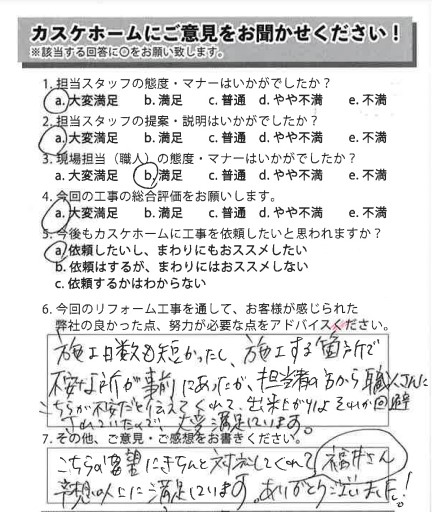 カスケホームにご意見をお聞かせください！
※該当する回答に○をお願い致します。
1. 担当スタッフの態度・マナーはいかがでしたか？
a. 大変満足 b. 満足 c. 普通 d. やや不満 e. 不満
2. 担当スタッフの提案・説明はいかがでしたか？
a. 大変満足 b. 満足 c. 普通 d. やや不満 e. 不満
3. 現場担当（職人）の態度・マナーはいかがでしたか？
a. 大変満足 b. 満足 c. 普通 d. やや不満 e. 不満
4. 今回の工事の総合評価をお願いします。
a. 大変満足 b. 満足 c. 普通 d. やや不満 e. 不満
5. 今後もカスケホームに工事を依頼したいと思われますか？
a. 依頼したいし、まわりにもおススメしたい
b. 依頼はするが、まわりにはおススメしない
c. 依頼するかはわからない
6. 今回のリフォーム工事を通して、お客様が感じられた
弊社の良かった点、努力が必要な点をアドバイスください。
施工日数も短かったし、施工する箇所で
不安な所が事前にあったが、担当者の方から職人さんに
こちらが不安だと伝えてくれて、出来上がりはそれが回避
されていたので、大変満足しています。
7. その他、ご意見・ご感想をお書きください。
こちらの要望にきちんと対応してくれて 福井さん
予想以上に満足しています。ありがとうございました！